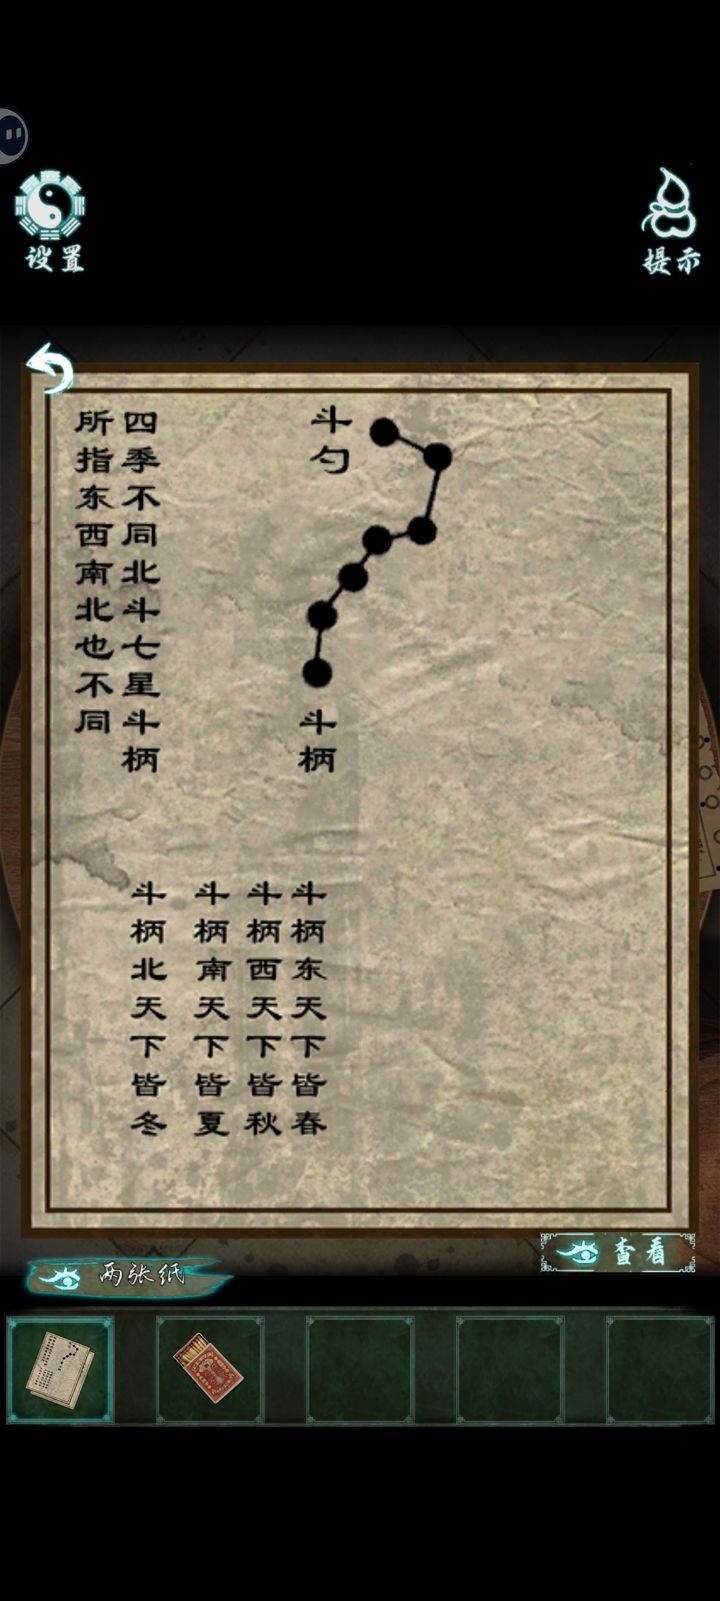 设置
提示
四季不同北斗七星斗柄
所指东西南北也不同
斗勺
斗柄
斗柄东天下皆春
斗柄西天下皆秋
斗柄南天下皆夏
斗柄北天下皆冬
查看
两张纸